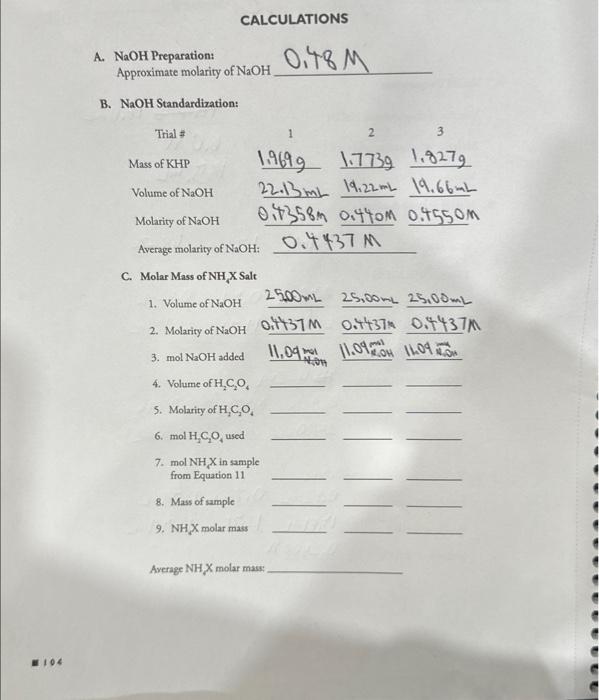 CALCULATIONS
A. NaOH Preparation:
Approximate molarity of NaOH 0.48 M
B. NaOH Standardization:
Trial # 1 2 3
Mass of KHP 1.969g 1.773g 1.827g
Volume of NaOH 22.13mL 19.22mL 19.66mL
Molarity of NaOH 0.4358M 0.440M 0.4550M
Average molarity of NaOH: 0.4437 M
C. Molar Mass of NH₄X Salt
1. Volume of NaOH 25.00mL 25.00mL 25.00mL
2. Molarity of NaOH 0.4437M 0.4437M 0.4437M
3. mol NaOH added 11.09 mol NaOH 11.09 mol NaOH 11.09 mol NaOH
4. Volume of H₂C₂O₄
5. Molarity of H₂C₂O₄
6. mol H₂C₂O₄ used
7. mol NH₄X in sample
from Equation 11
8. Mass of sample
9. NH₄X molar mass
Average NH₄X molar mass:
104